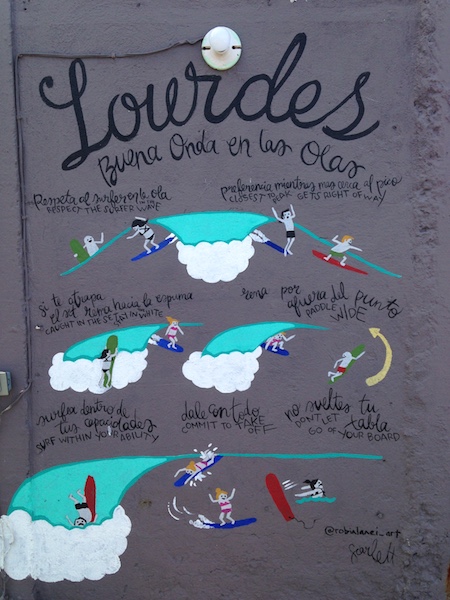 Lourdes
Buena Onda en las Olas
Respeta al surfer en la ola
RESPECT THE SURFER IN THE WAVE
preferencia mientras mas cerca al pico
CLOSEST TO PEAK GETS RIGHT OF WAY
si te atrapa
el set rema hacia la espuma
CAUGHT IN THE SET STAY IN WHITE
rema por
afuera del punto
PADDLE WIDE
surfea dentro de
tus capacidades
SURF WITHIN YOUR ABILITY
dale con todo
COMMIT TO TAKE
OFF
no sueltes tu
tabla
DON'T LET
GO OF YOUR BOARD
Scarlett